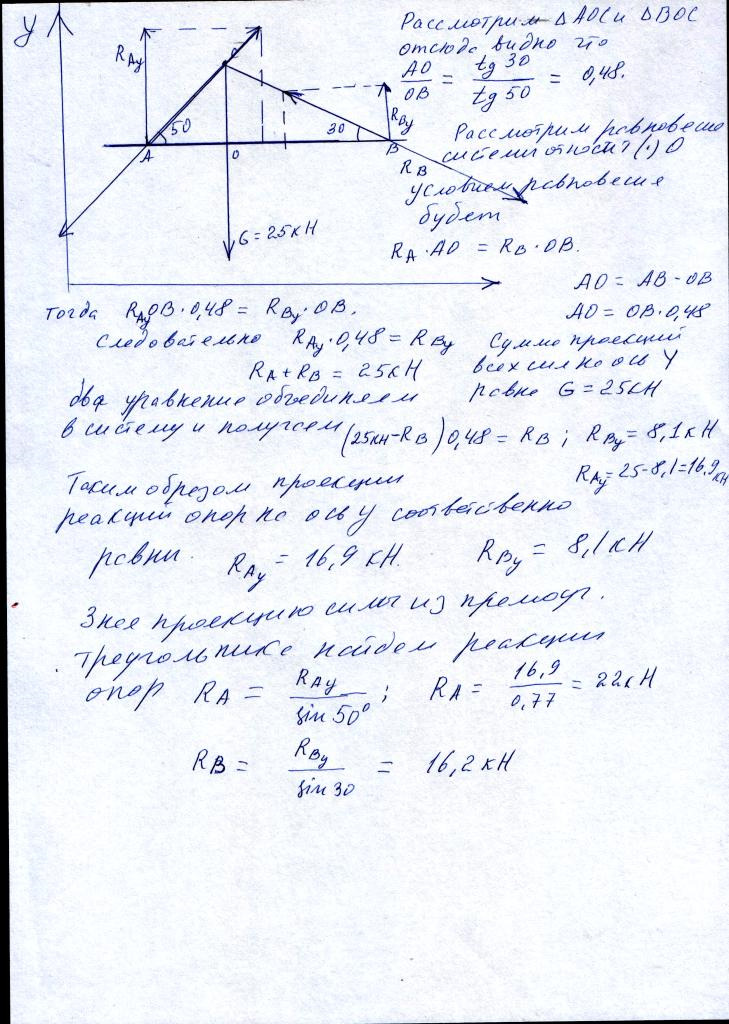 У
Рассмотрим ΔAOC и ΔBOC
отсюда видно что
AO/OB = tg 30/tg 50 = 0,48.
RAy
C
50
30
RBy
A
O
B
RB
G = 25кН
Рассмотрим равновесие
системы относит (·) O
условием равновесия
будет
RA · AO = RB · OB.
AO = AB - OB
AO = OB · 0,48
Тогда RAy OB · 0,48 = RBy · OB.
Следовательно RAy · 0,48 = RBy
Сумма проекций
всех сил на ось Y
равна G = 25кН
RA + RB = 25кН
два уравнения объединяем
в систему и получаем (25кН - RB) 0,48 = RB ; RBy = 8,1кН
RAy = 25 - 8,1 = 16,9 кН
Таким образом проекции
реакций опор на ось у соответственно
равны. RAy = 16,9 кН. RBy = 8,1 кН
Зная проекцию силы из прямоуг.
треугольника найдем реакции
опор RA = RAy/sin 50° ; RA = 16,9/0,77 = 22кН
RB = RBy/sin 30 = 16,2 кН